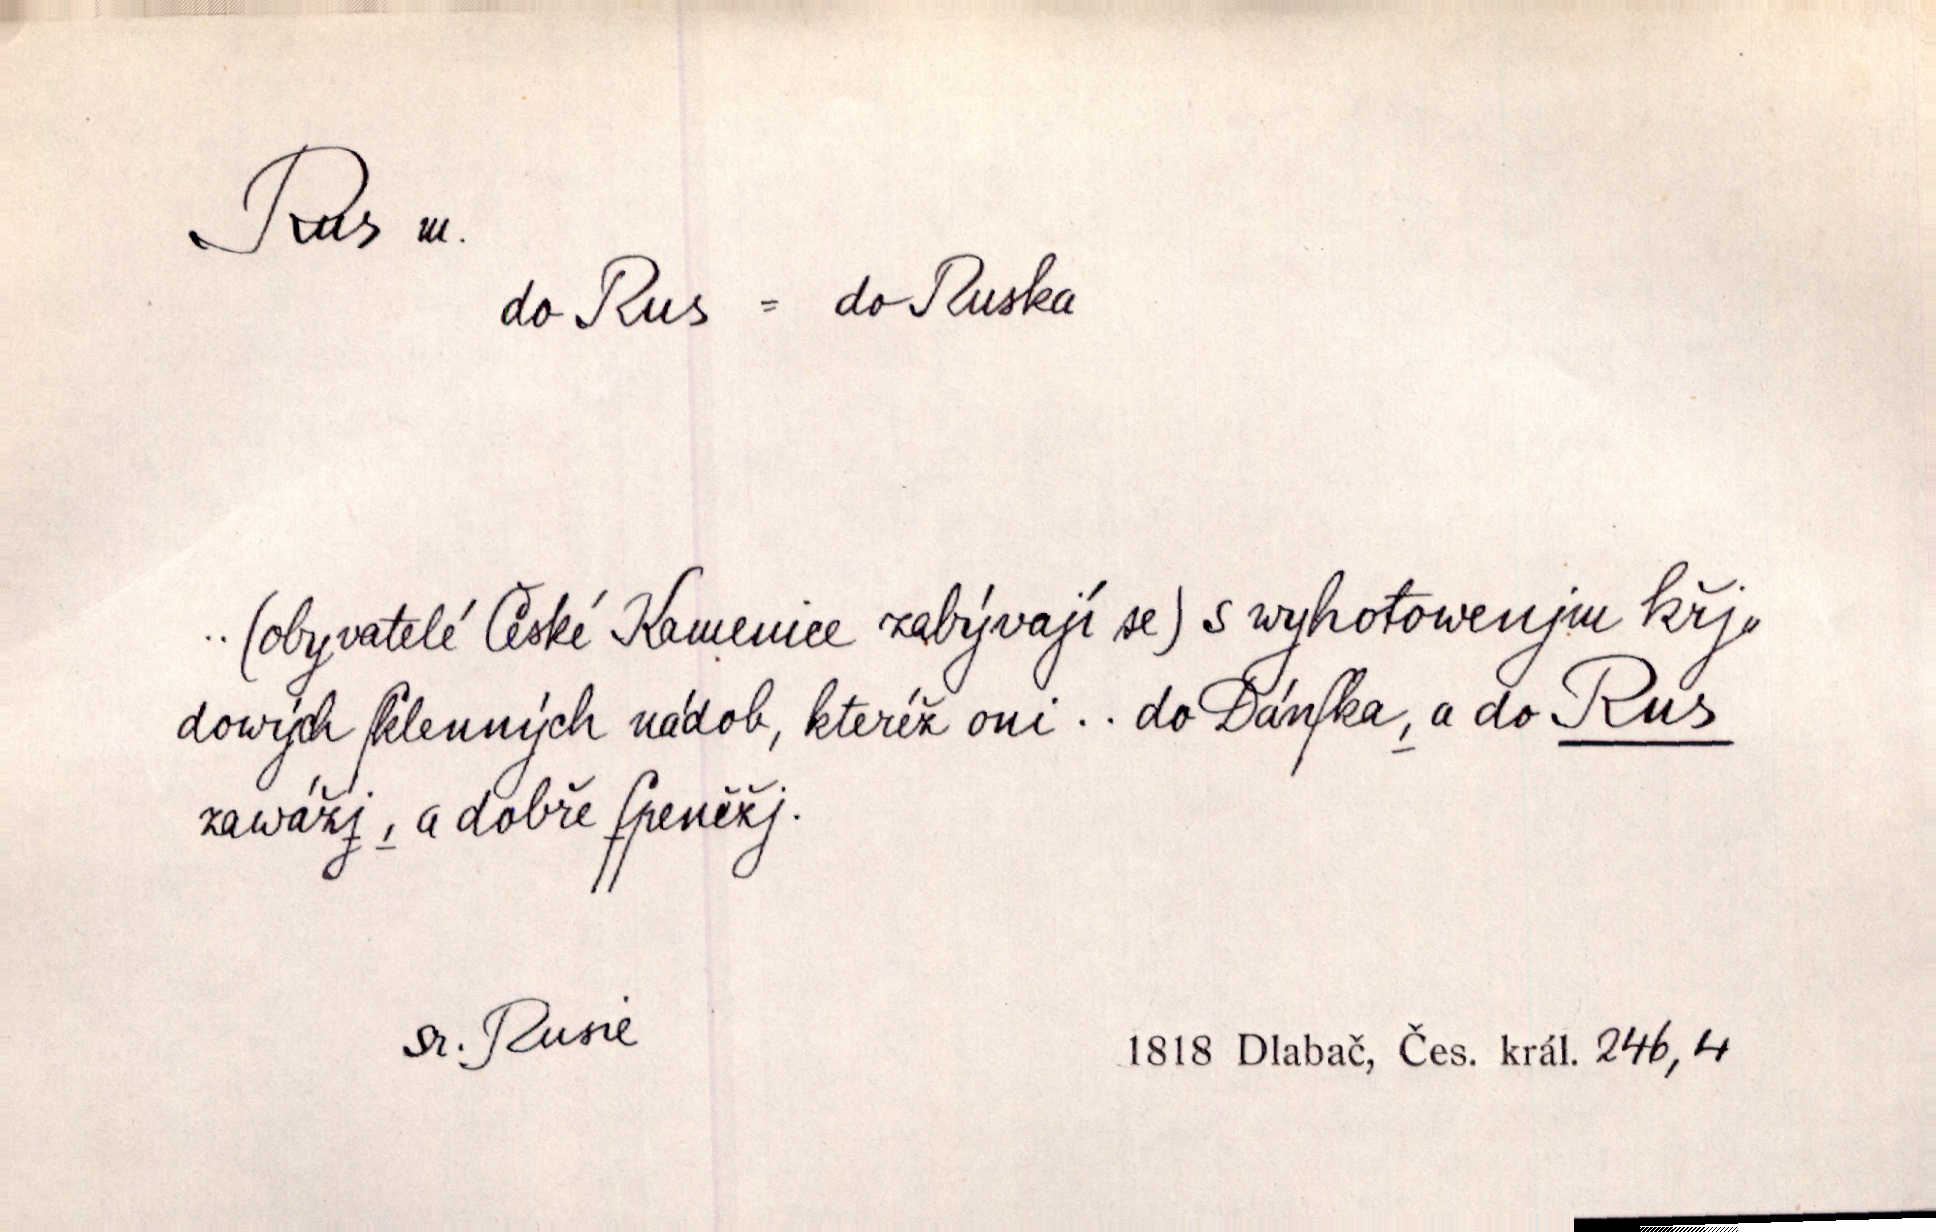 Rus m.
do Rus = do Ruska
.. (obyvatelé České Kamenice zabývají se) s wyhotowenjm křj„
dowých ſklenných nádob, kteréž oni .. do Dánſka, a do Rus
zawážj, a dobře ſpeněžj.
sr. Rusie
1818 Dlabač, Čes. král. 246, 4